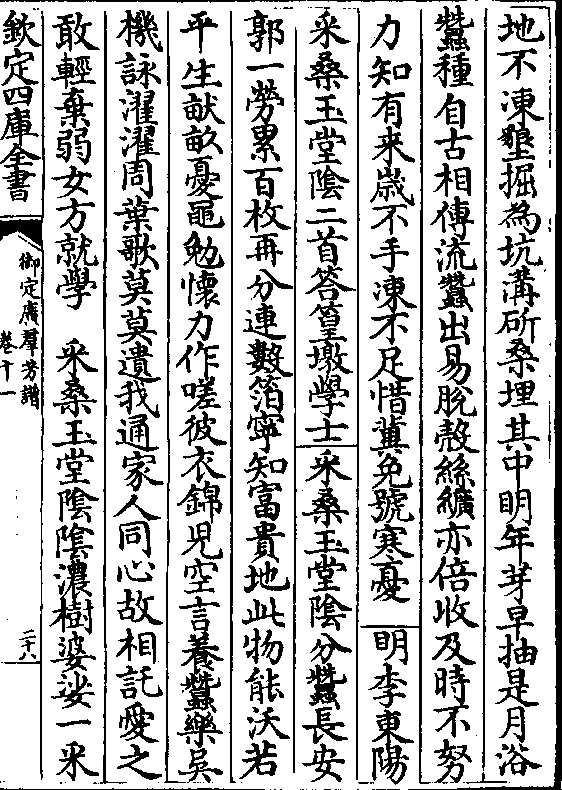 地不凍墾掘為坑溝斫桑埋其中明年芽早抽是月浴
蠶種自古相傳流蠶出易脫殻絲纊亦倍收及時不努
力知有来嵗不手凍不足惜冀免號寒憂 明李東陽
采桑玉堂陰二首答篁墩學士 采桑玉堂陰分蠶長安
郭一勞累百枚再分連數箔寧知富貴地此物能沃若
平生献畝憂黽勉懷力作嗟彼衣錦兒空言養蠶樂吳
機詠濯濯周葉歌莫莫遺我通家人同心故相託愛之
敢輕棄弱女方就學 采桑玉堂陰陰濃樹婆娑一采
欽定四庫全書
御定廣羣芳譜
卷十一
二十八